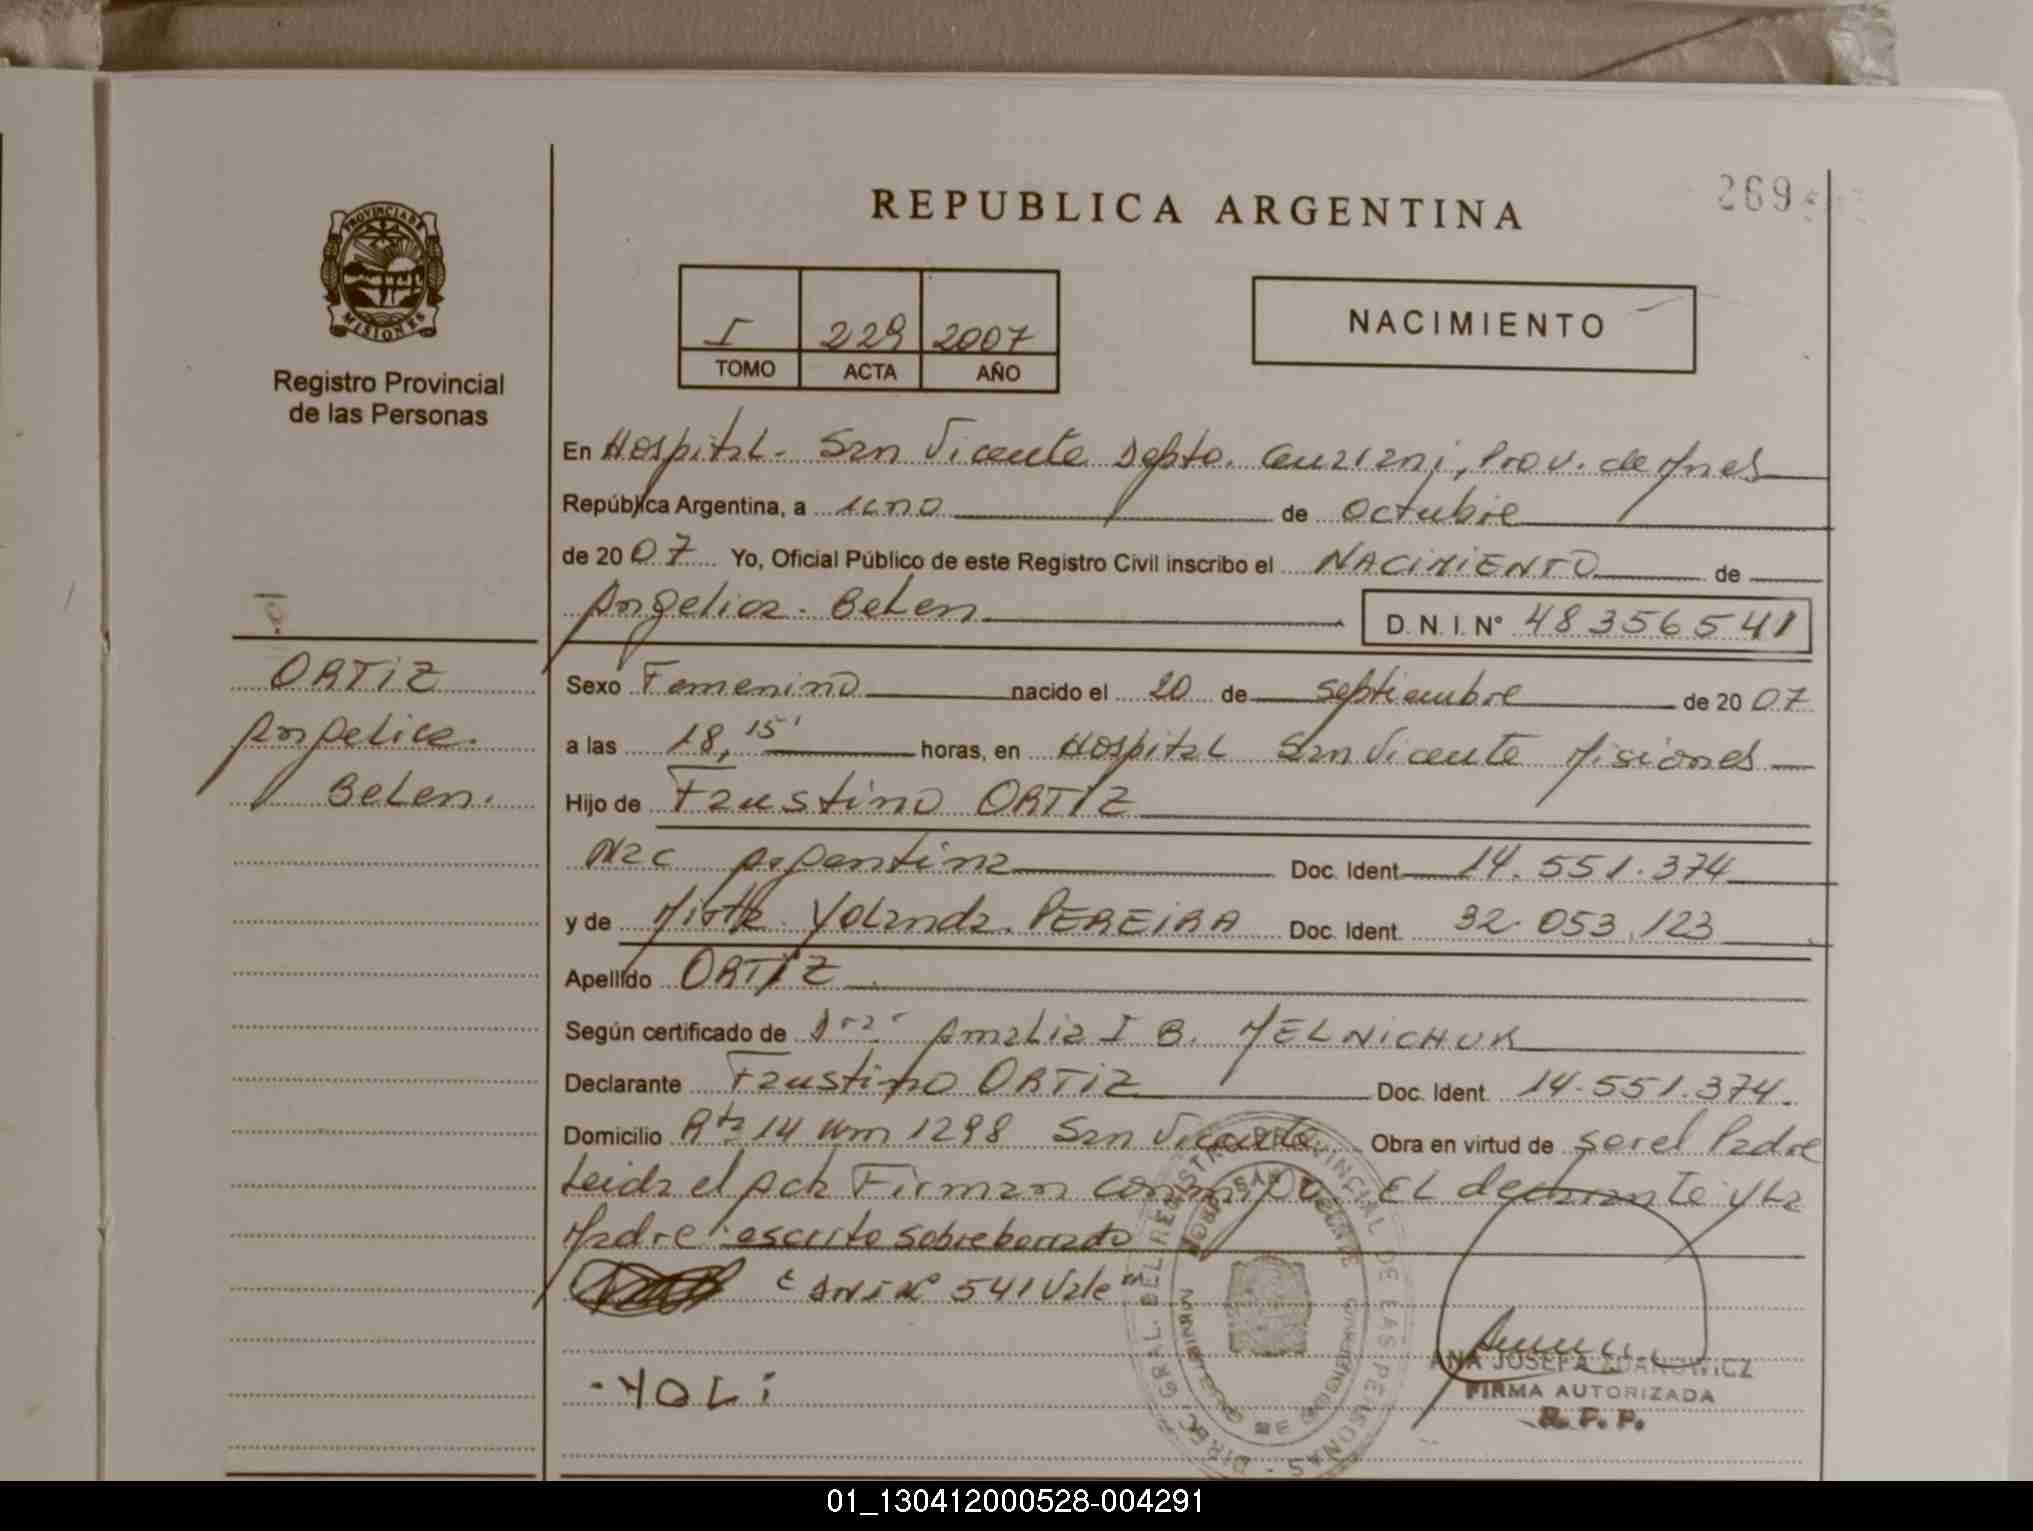 REPUBLICA ARGENTINA
269
PROVINCIA DE
MISIONES
Registro Provincial
de las Personas
I 229 2007
TOMO ACTA AÑO
NACIMIENTO
En Hospital. San Vicente Depto. Guarani, Prov. de Mnes
República Argentina, a uno de Octubre
de 2007 Yo, Oficial Público de este Registro Civil inscribo el NACIMIENTO de
Angelica. Belen D.N.I. N° 48356541
ORTIZ
Angelica.
Belen.
Sexo Femenino nacido el 20 de septiembre de 2007
a las 18,15' horas, en Hospital San Vicente Misiones
Hijo de Faustino ORTIZ
Nac Argentina Doc. Ident. 14.551.374
y de Mirta Yolanda PEREIRA Doc. Ident. 32.053.123
Apellido ORTIZ
Según certificado de Dra. Amalia I B. MELNICHUK
Declarante Faustino ORTIZ Doc. Ident. 14.551.374.
Domicilio Rta 14 Km 1298 San Vicente Obra en virtud de ser el Padre
Leida el Acta Firman conmigo EL declarante y La
Madre. escrito sobreborrado
"DNI N° 541 Vale"
DIREC. GRAL. DEL REGISTRO PROVINCIAL DE LAS PERSONAS
ANA JOSEFA
FIRMA AUTORIZADA
R. P. P.
YOLI
01_130412000528-004291